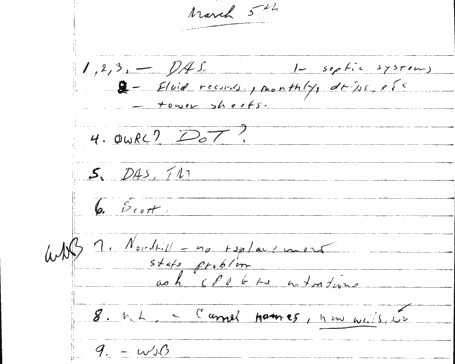 March 5th
1, 2, 3, - DAS. 1- septic systems
2- Fluid records, monthly, drips, etc
- tower sheets.
4. OWRC? DOT?
5. DAS, TM
6. Scott
WNB 7. Nordhill - no replacement
state problem
ask
8. - Camel names, new wells,
9. - WNB